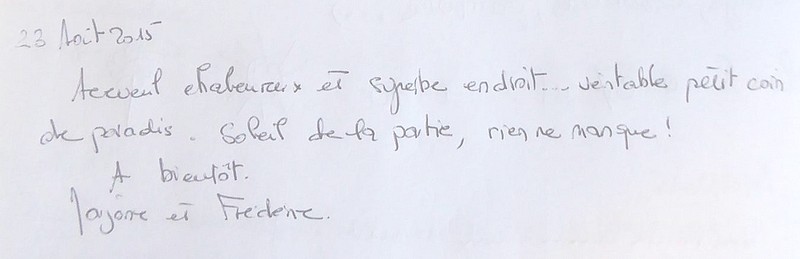 23 Août 2015
Accueil chaleureux et superbe endroit... véritable petit coin
de paradis. Soleil de la partie, rien ne manque !
A bientôt.
et Frédéric.